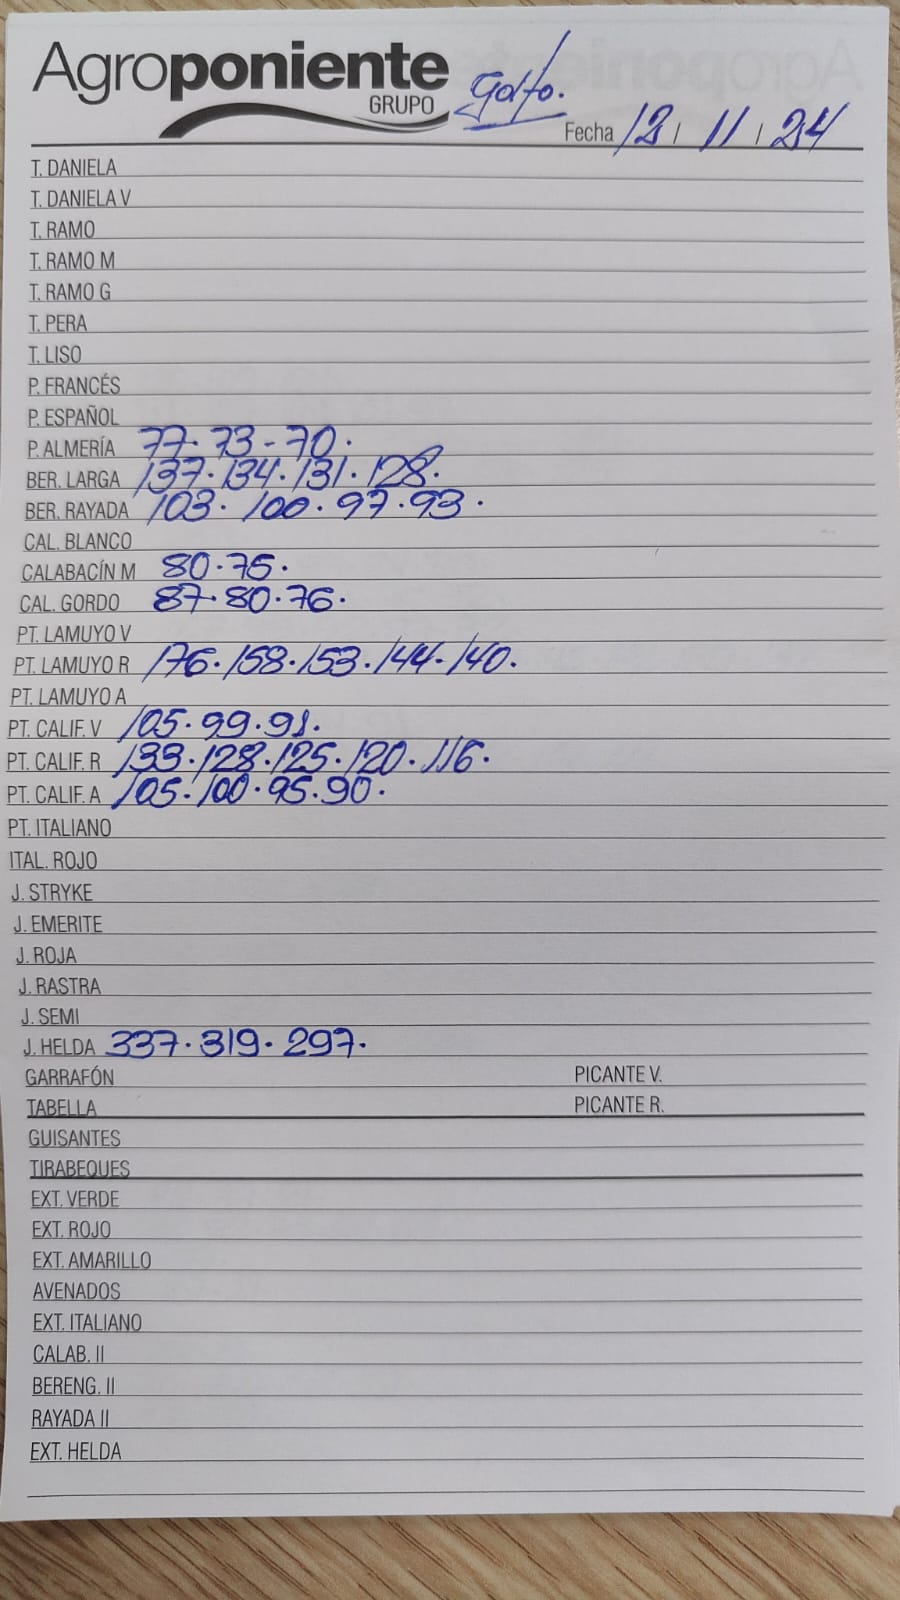 Agroponiente
GRUPO
Golfo.
Fecha 12 / 11 / 24
T. DANIELA
T. DANIELA V
T. RAMO
T. RAMO M
T. RAMO G
T. PERA
T. LISO
P. FRANCÉS
P. ESPAÑOL
P. ALMERÍA 77. 73 - 70.
BER. LARGA 137. 134. 131. 128.
BER. RAYADA 103. 100. 97. 93.
CAL. BLANCO
CALABACÍN M 80. 75.
CAL. GORDO 87. 80. 76.
PT. LAMUYO V
PT. LAMUYO R 176. 158. 153. 144. 140.
PT. LAMUYO A
PT. CALIF. V 105. 99. 91.
PT. CALIF. R 133. 128. 125. 120. 116.
PT. CALIF. A 105. 100. 95. 90.
PT. ITALIANO
ITAL. ROJO
J. STRYKE
J. EMERITE
J. ROJA
J. RASTRA
J. SEMI
J. HELDA 337. 319. 297.
GARRAFÓN PICANTE V.
TABELLA PICANTE R.
GUISANTES
TIRABEQUES
EXT. VERDE
EXT. ROJO
EXT. AMARILLO
AVENADOS
EXT. ITALIANO
CALAB. II
BERENG. II
RAYADA II
EXT. HELDA